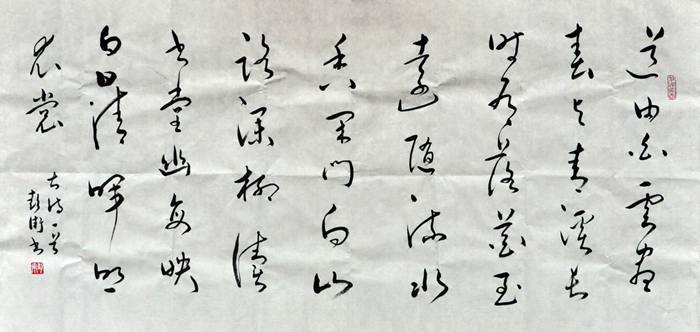 道由白雲盡
春与青溪長
時有落花至
遠随流水
香闲门向山
路深柳讀
书堂幽每映
白日清暉照
衣裳
古诗一首
书